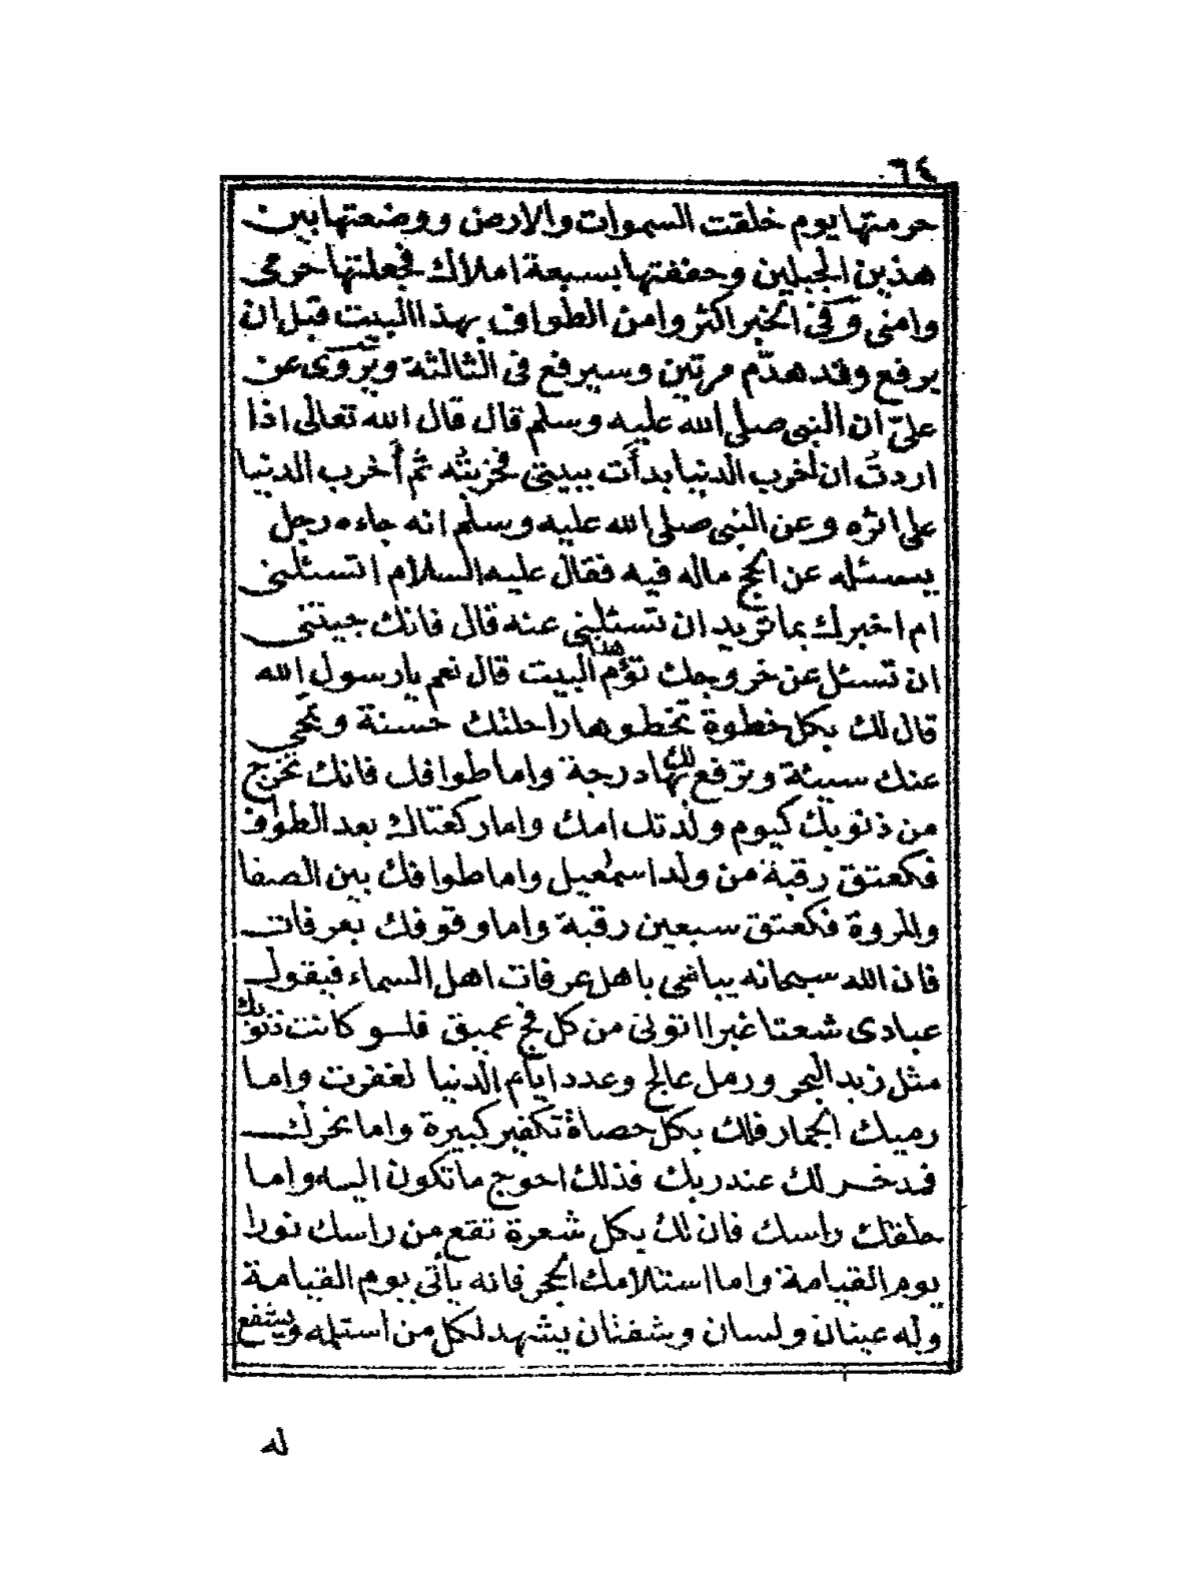 ٦٤
حرمتها يوم خلقت السموات والارض ووضعتها بين
هذين الجبلين وحففتها بسبعة املاك فجعلتها حرمى
وامنى وفى الخبر اكثروا من الطواف بهذا البيت قبل ان
يرفع وقد هدّم مرتين وسيرفع فى الثالثة ويروى عن
علىّ ان النبى صلى الله عليه وسلم قال قال الله تعالى اذا
اردت ان اخرب الدنيا بدأت ببيتى فخربته ثم أخرب الدنيا
على اثره وعن النبى صلى الله عليه وسلم انه جاءه رجل
يسئله عن الحج ماله فيه فقال عليه السلام اتسئلنى
ام اخبرك بما تريد ان تسئلنى عنه قال فانك جيتنى
ان تسئل عن خروجك تؤم هذا البيت قال نعم يا رسول الله
قال لك بكل خطوة تخطوها راحلتك حسنة وتمحى
عنك سيئة وترفع لك بها درجة واما طوافك فانك تخرج
من ذنوبك كيوم ولدتك امك واما ركعتاك بعد الطواف
فكعتق رقبة من ولد اسمعيل واما طوافك بين الصفا
والمروة فكعتق سبعين رقبة واما وقوفك بعرفات
فان الله سبحانه يباهى باهل عرفات اهل السماء فيقول
عبادى شعثا غبرا اتونى من كل فج عميق فلو كانت ذنوبك
مثل زبد البحر ورمل عالج وعدد ايام الدنيا لغفرت واما
رميك الجمار فلك بكل حصاة تكفير كبيرة واما نحرك
فمدخر لك عند ربك فذلك احوج ما تكون اليه واما
حلقك راسك فان لك بكل شعرة تقع من راسك نورا
يوم القيامة واما استلامك الحجر فانه يأتى يوم القيامة
وله عينان ولسان وشفتان يشهد لكل من استلمه ويشفع
له